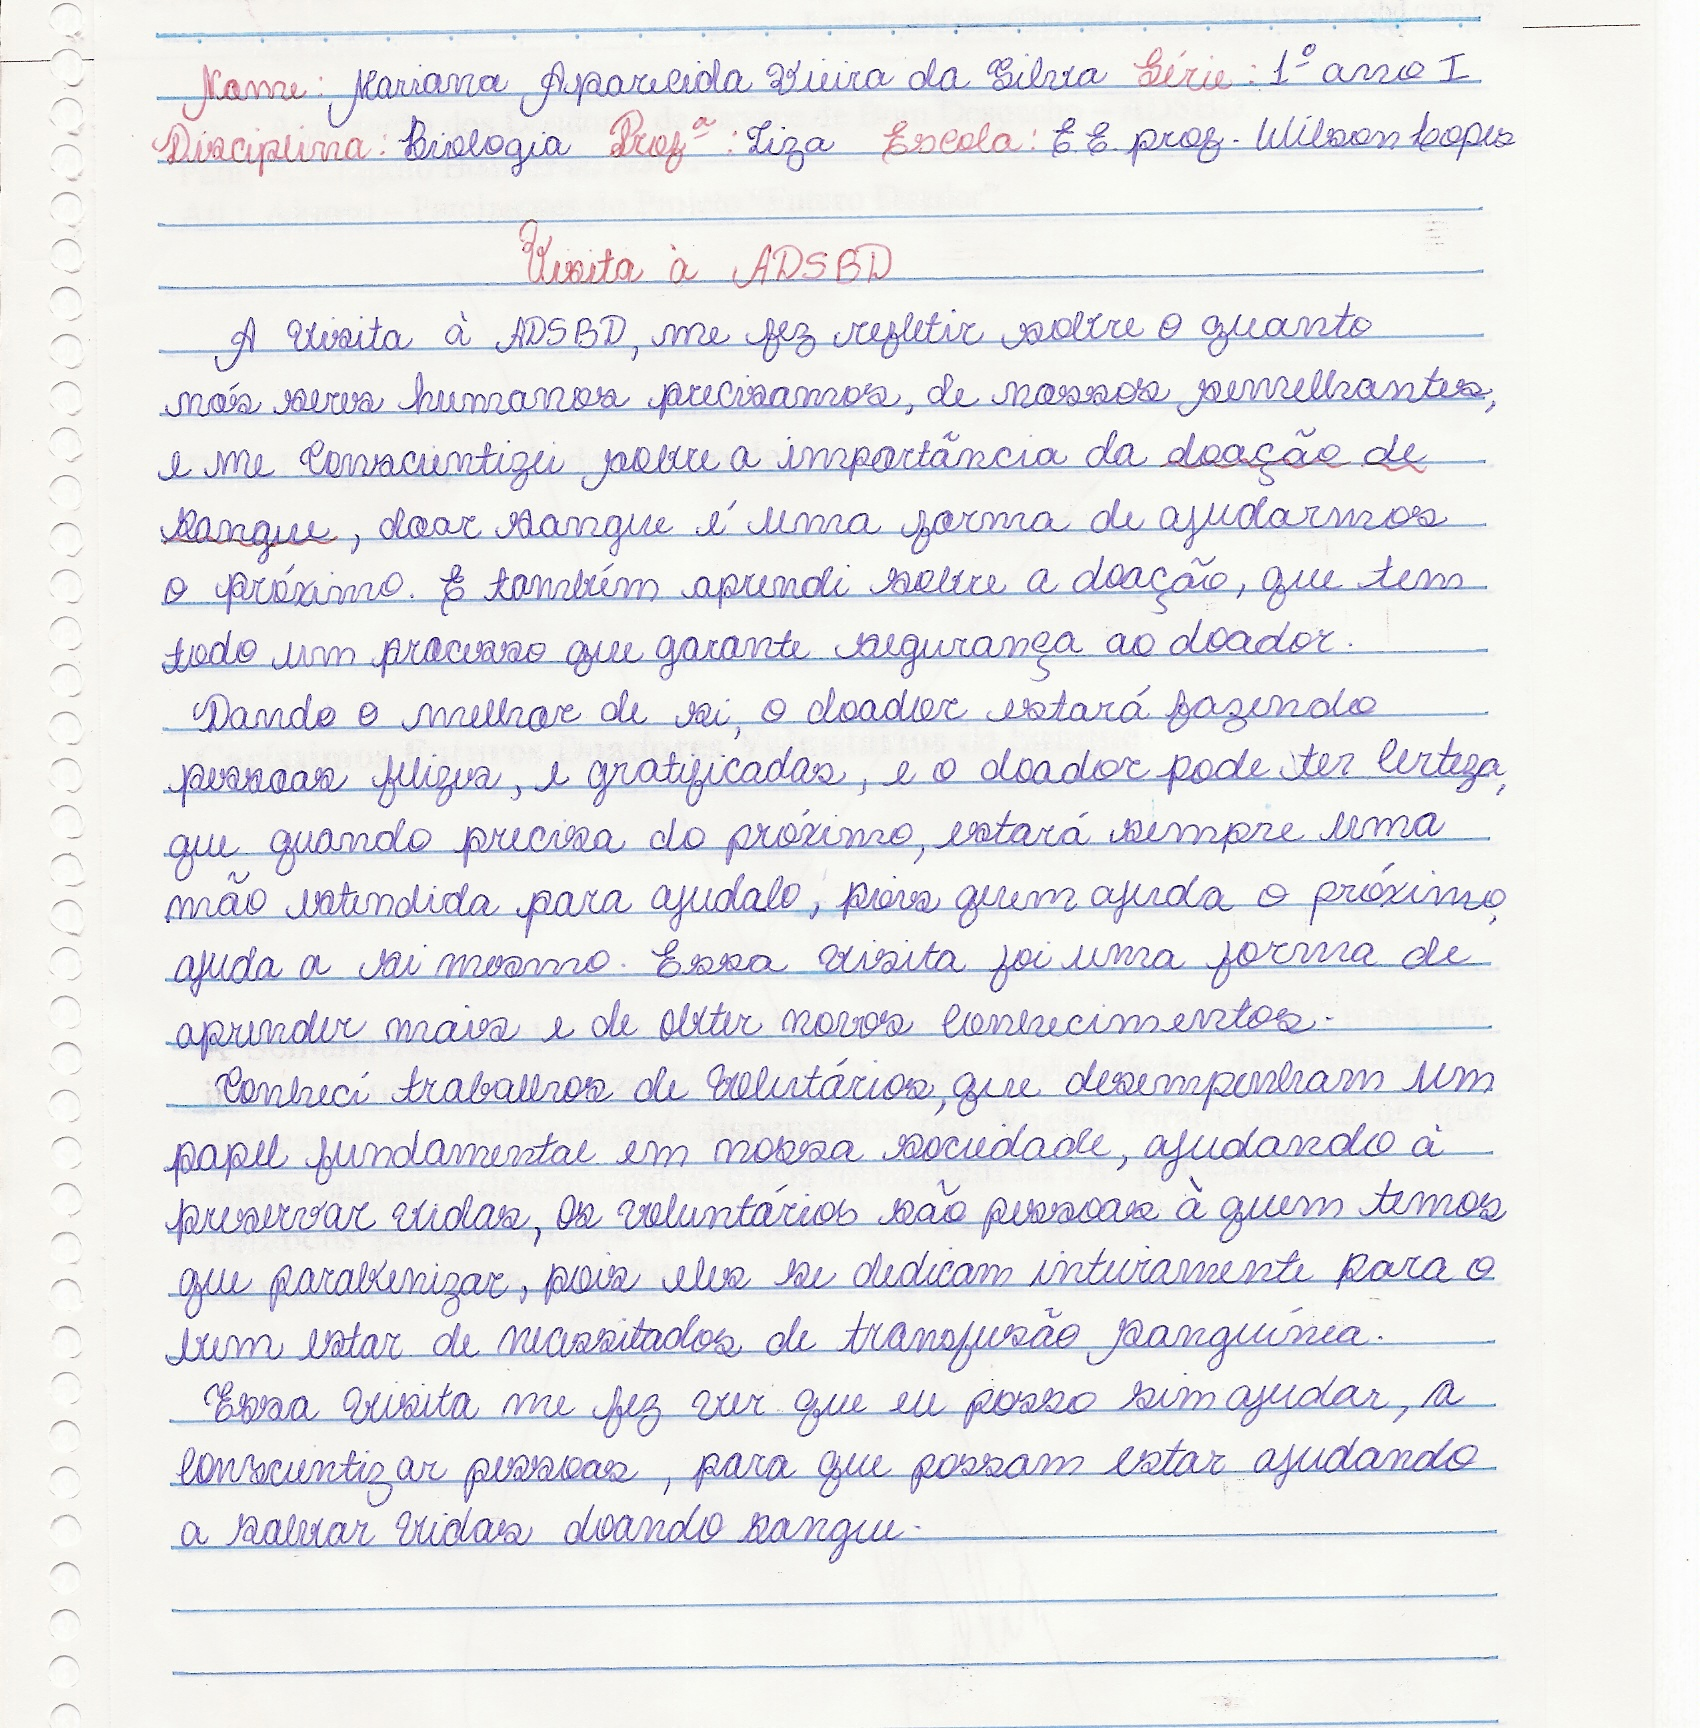 Nome: Mariana Aparecida Vieira da Silva Série: 1º ano I
Disciplina: Biologia Profª: Ziza Escola: E.E. prof. Wilson Lopes
Visita à ADSBD
A visita à ADSBD, me fez refletir sobre o quanto
nós seres humanos precisamos, de nossos semelhantes,
e me conscientizei sobre a importância da doação de
sangue, doar sangue é uma forma de ajudarmos
o próximo. E também aprendi sobre a doação, que tem
todo um processo que garante segurança ao doador.
Dando o melhor de si, o doador estará fazendo
pessoas felizes, e gratificadas, e o doador pode ter certeza,
que quando precisa do próximo, estará sempre uma
mão estendida para ajudalo, pois quem ajuda o próximo,
ajuda a si mesmo. Essa visita foi uma forma de
aprender mais e de obter novos conhecimentos.
Conhecí trabalhos de volutários, que desempenham um
papel fundamental em nossa sociedade, ajudando à
preservar vidas, os voluntários são pessoas à quem temos
que parabenizar, pois eles se dedicam inteiramente para o
bem estar de necessitados de transfusão sanguínea.
Essa visita me fez ver que eu posso sim ajudar, a
conscientizar pessoas, para que possam estar ajudando
a salvar vidas doando sangue.